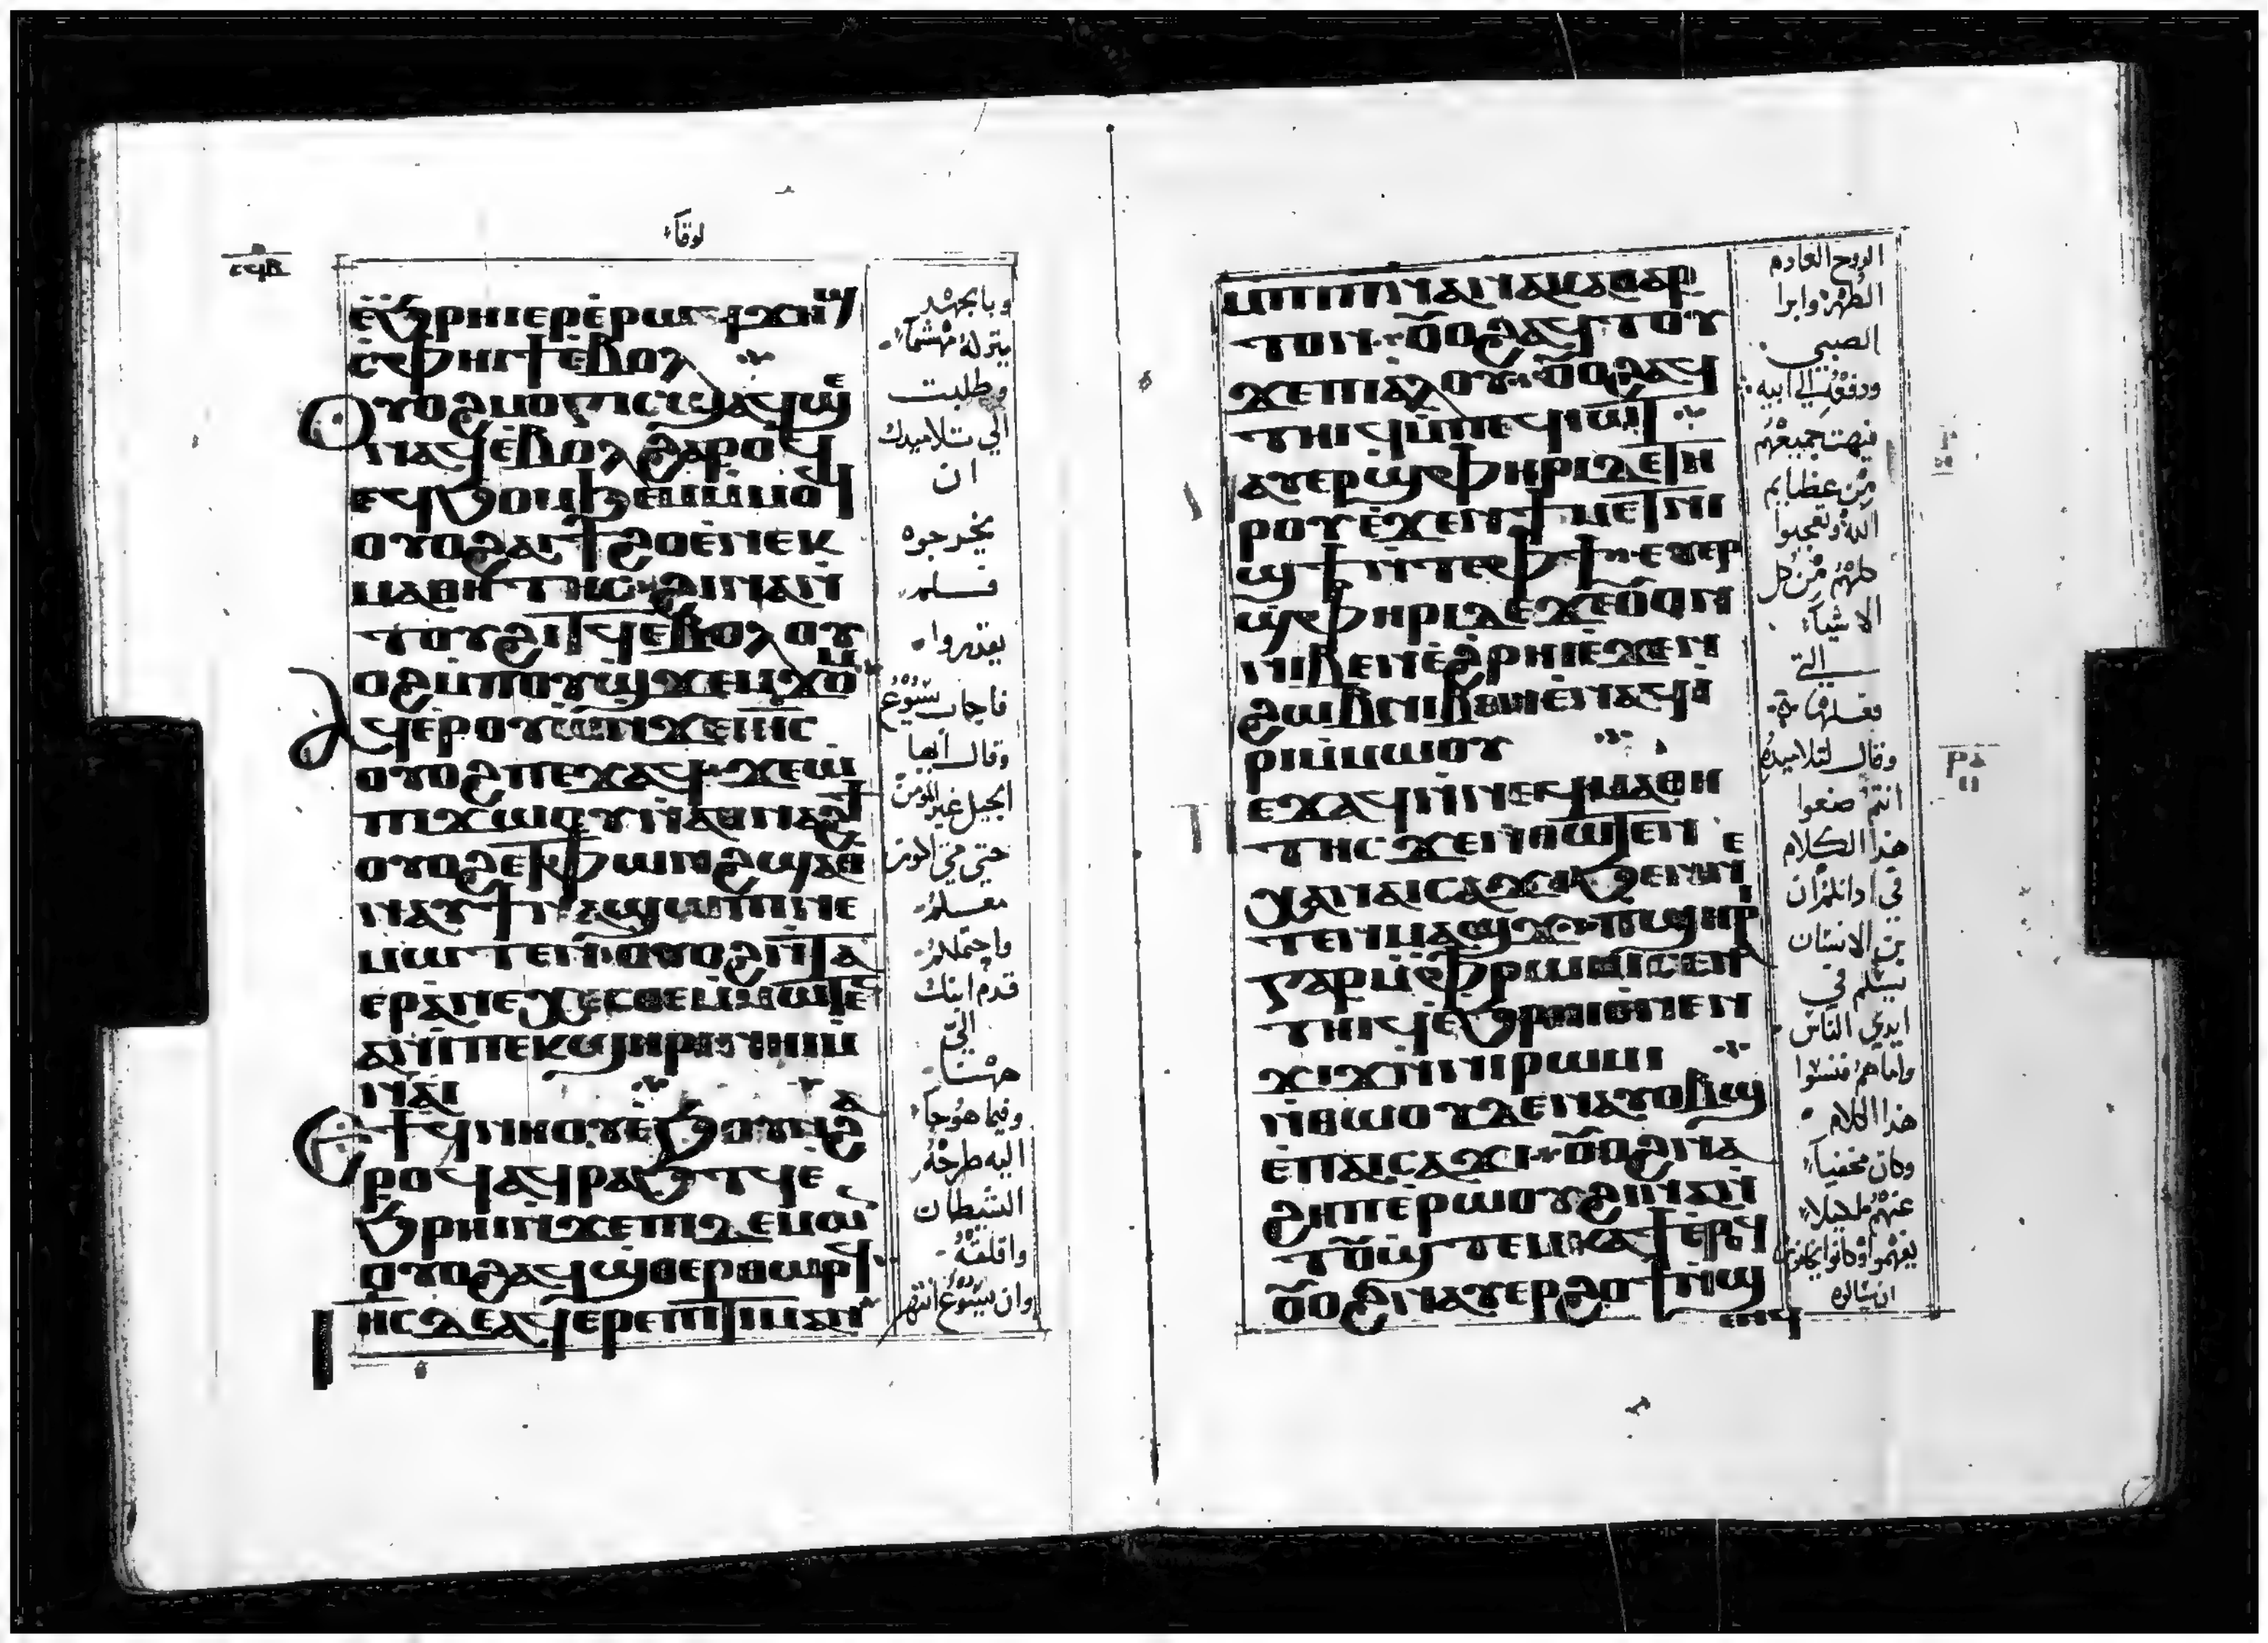 لوقا
ⲉ̀ϧⲣⲏⲓ ⲉⲣⲉ̀ⲣⲱϥ
ⲉ̀ⲫⲏⲓϯ ⲉ̀ⲃⲟⲗ
ⲟⲩⲟϩ
ⲛⲁϥ ⲉ̀ⲃⲟⲗ ϩⲁⲣⲟϥ
ⲉϥϧⲟⲙϧⲉⲙ ⲙ̀ⲙⲟϥ
ⲟⲩⲟϩ ⲁⲓϯϩⲟ ⲉ̀ⲛⲉⲕ
ⲙⲁⲑⲏⲧⲏⲥ ϩⲓⲛⲁ ⲛ̀
ⲧⲟⲩϩⲓⲧϥ ⲉ̀ⲃⲟⲗ ⲟⲩ
ⲟϩ ⲙ̀ⲡⲟⲩϣϫⲉⲙϫⲟⲙ
ⲁϥⲉⲣⲟⲩⲱ̀ ⲛ̀ϫⲉ ⲓⲏⲥ
ⲟⲩⲟϩ ⲡⲉϫⲁϥ ϫⲉ ⲱ̀
ⲡⲓϫⲱⲟⲩ ⲛ̀ⲁⲑⲛⲁϩϯ
ⲟⲩⲟϩ ⲉⲧⲫⲱⲛϩ ϣⲁ ⲑ̀
ⲛⲁⲩ ϯⲛⲁϣⲱⲡⲓ ⲛⲉ
ⲙⲱⲧⲉⲛ ⲟⲩⲟϩ ⲛ̀ⲧⲁ
ⲉⲣⲁ̀ⲛⲉⲭⲉⲥⲑⲉ ⲙ̀ⲙⲱⲧⲉⲛ
ⲁⲛⲓ ⲡⲉⲕϣⲏⲣⲓ ⲛⲏⲓ ⲙ̀
ⲛⲁⲓ
ⲉⲧⲓ ϥⲛⲏⲟⲩ ⲉ̀ϧⲟⲩⲛ ϩⲁ
ⲣⲟϥ ⲁϥⲣⲁϧⲧϥ ⲉ̀
ϧⲣⲏⲓ ⲛ̀ϫⲉ ⲡⲓⲇⲉⲙⲱⲛ
ⲟⲩⲟϩ ⲁϥϣⲑⲉⲣⲑⲱⲣϥ
ⲓⲏⲥ ⲇⲉ ⲁϥⲉⲣⲉⲡⲓⲧⲓⲙⲁⲛ
وبالجهد
يتركه
وطلبت
الي تلاميدك
ان
يخرجوه
فلم
يقدروا
فاجاب يسوع
وقال ايها
الجيل غير المومن
حتي متي اكون
معكم
واحتملكم
قدم ابنك
الي
هاهنا
وفيما هو جا
اليه طرحه
الشيطان
واقلقه
وان يسوع انتهر
ⲙ̀ⲡⲓⲡⲛⲁ ⲛ̀ⲁⲕⲁⲑⲁⲣ
ⲧⲟⲛ ⲟⲩⲟϩ ⲁϥⲧⲟⲩ
ϫⲉ ⲡⲓⲁⲗⲟⲩ ⲟⲩⲟϩ ⲁϥ
ⲧⲏⲓϥ ⲙ̀ⲡⲉϥⲓⲱⲧ
ⲁⲩⲉⲣϣⲫⲏⲣⲓ ⲇⲉ ⲧⲏ
ⲣⲟⲩ ⲉ̀ϫⲉⲛ ϯⲙⲉⲧⲛⲓ
ϣϯ ⲛ̀ⲧⲉ ⲫϯ ⲉⲩⲉⲣ
ϣⲫⲏⲣⲓ ⲇⲉ ϫⲉ ⲟⲩⲟⲛ
ⲛⲓⲃⲉⲛ ⲉ̀ϩⲣⲏⲓ ⲉ̀ϫⲉⲛ
ϩⲱⲃ ⲛⲓⲃⲉⲛ ⲉ̀ⲛⲁϥⲓ̀
ⲣⲓ ⲙ̀ⲙⲱⲟⲩ
ⲡⲉϫⲁϥ ⲛ̀ⲛⲉϥⲙⲁⲑⲏ
ⲧⲏⲥ ϫⲉ ⲛ̀ⲑⲱⲧⲉⲛ
ⲭⲁ ⲛⲁⲓⲥⲁϫⲓ ϧⲉⲛ ⲛⲉ
ⲧⲉⲛⲙⲁϣϫ ⲡϣⲏⲣⲓ
ⲅⲁⲣ ⲙ̀ⲫⲣⲱⲙⲓ ⲥⲉⲛⲁ
ⲧⲏⲓϥ ⲉ̀ϧⲣⲏⲓ ⲉ̀ⲛⲉⲛ
ϫⲓϫ ⲛ̀ⲛⲓⲣⲱⲙⲓ
ⲛ̀ⲑⲱⲟⲩ ⲇⲉ ⲛⲁⲩⲟⲃϣ
ⲉ̀ⲡⲁⲓⲥⲁϫⲓ ⲟⲩⲟϩ ⲛⲁϥ
ϩⲏⲡ ⲉ̀ⲣⲱⲟⲩ ϩⲓⲛⲁ ⲛ̀
ⲧⲟⲩϣⲧⲉⲙ
ⲟⲩⲟϩ ⲛⲁⲩⲉⲣϩⲟϯ ⲛ̀ϣ
ⲉⲛϥ
الروح العادم
الطهر وابرا
الصبي
ودفعه الي ابيه
فبهت جميعهم
من عظايم
الله وتعجبوا
كلهم من كل
الاشياء
التي
فعلها
وقال لتلاميده
انتم ضعوا
هدا الكلام
في ادانكم ان
بن الانسان
يسلم في
ايدي الناس
واما هم فنسوا
هدا الكلام
وكان مخفيا
عنهم لكيلا
يفهموا وكانوا يخافون
ان يسالوه